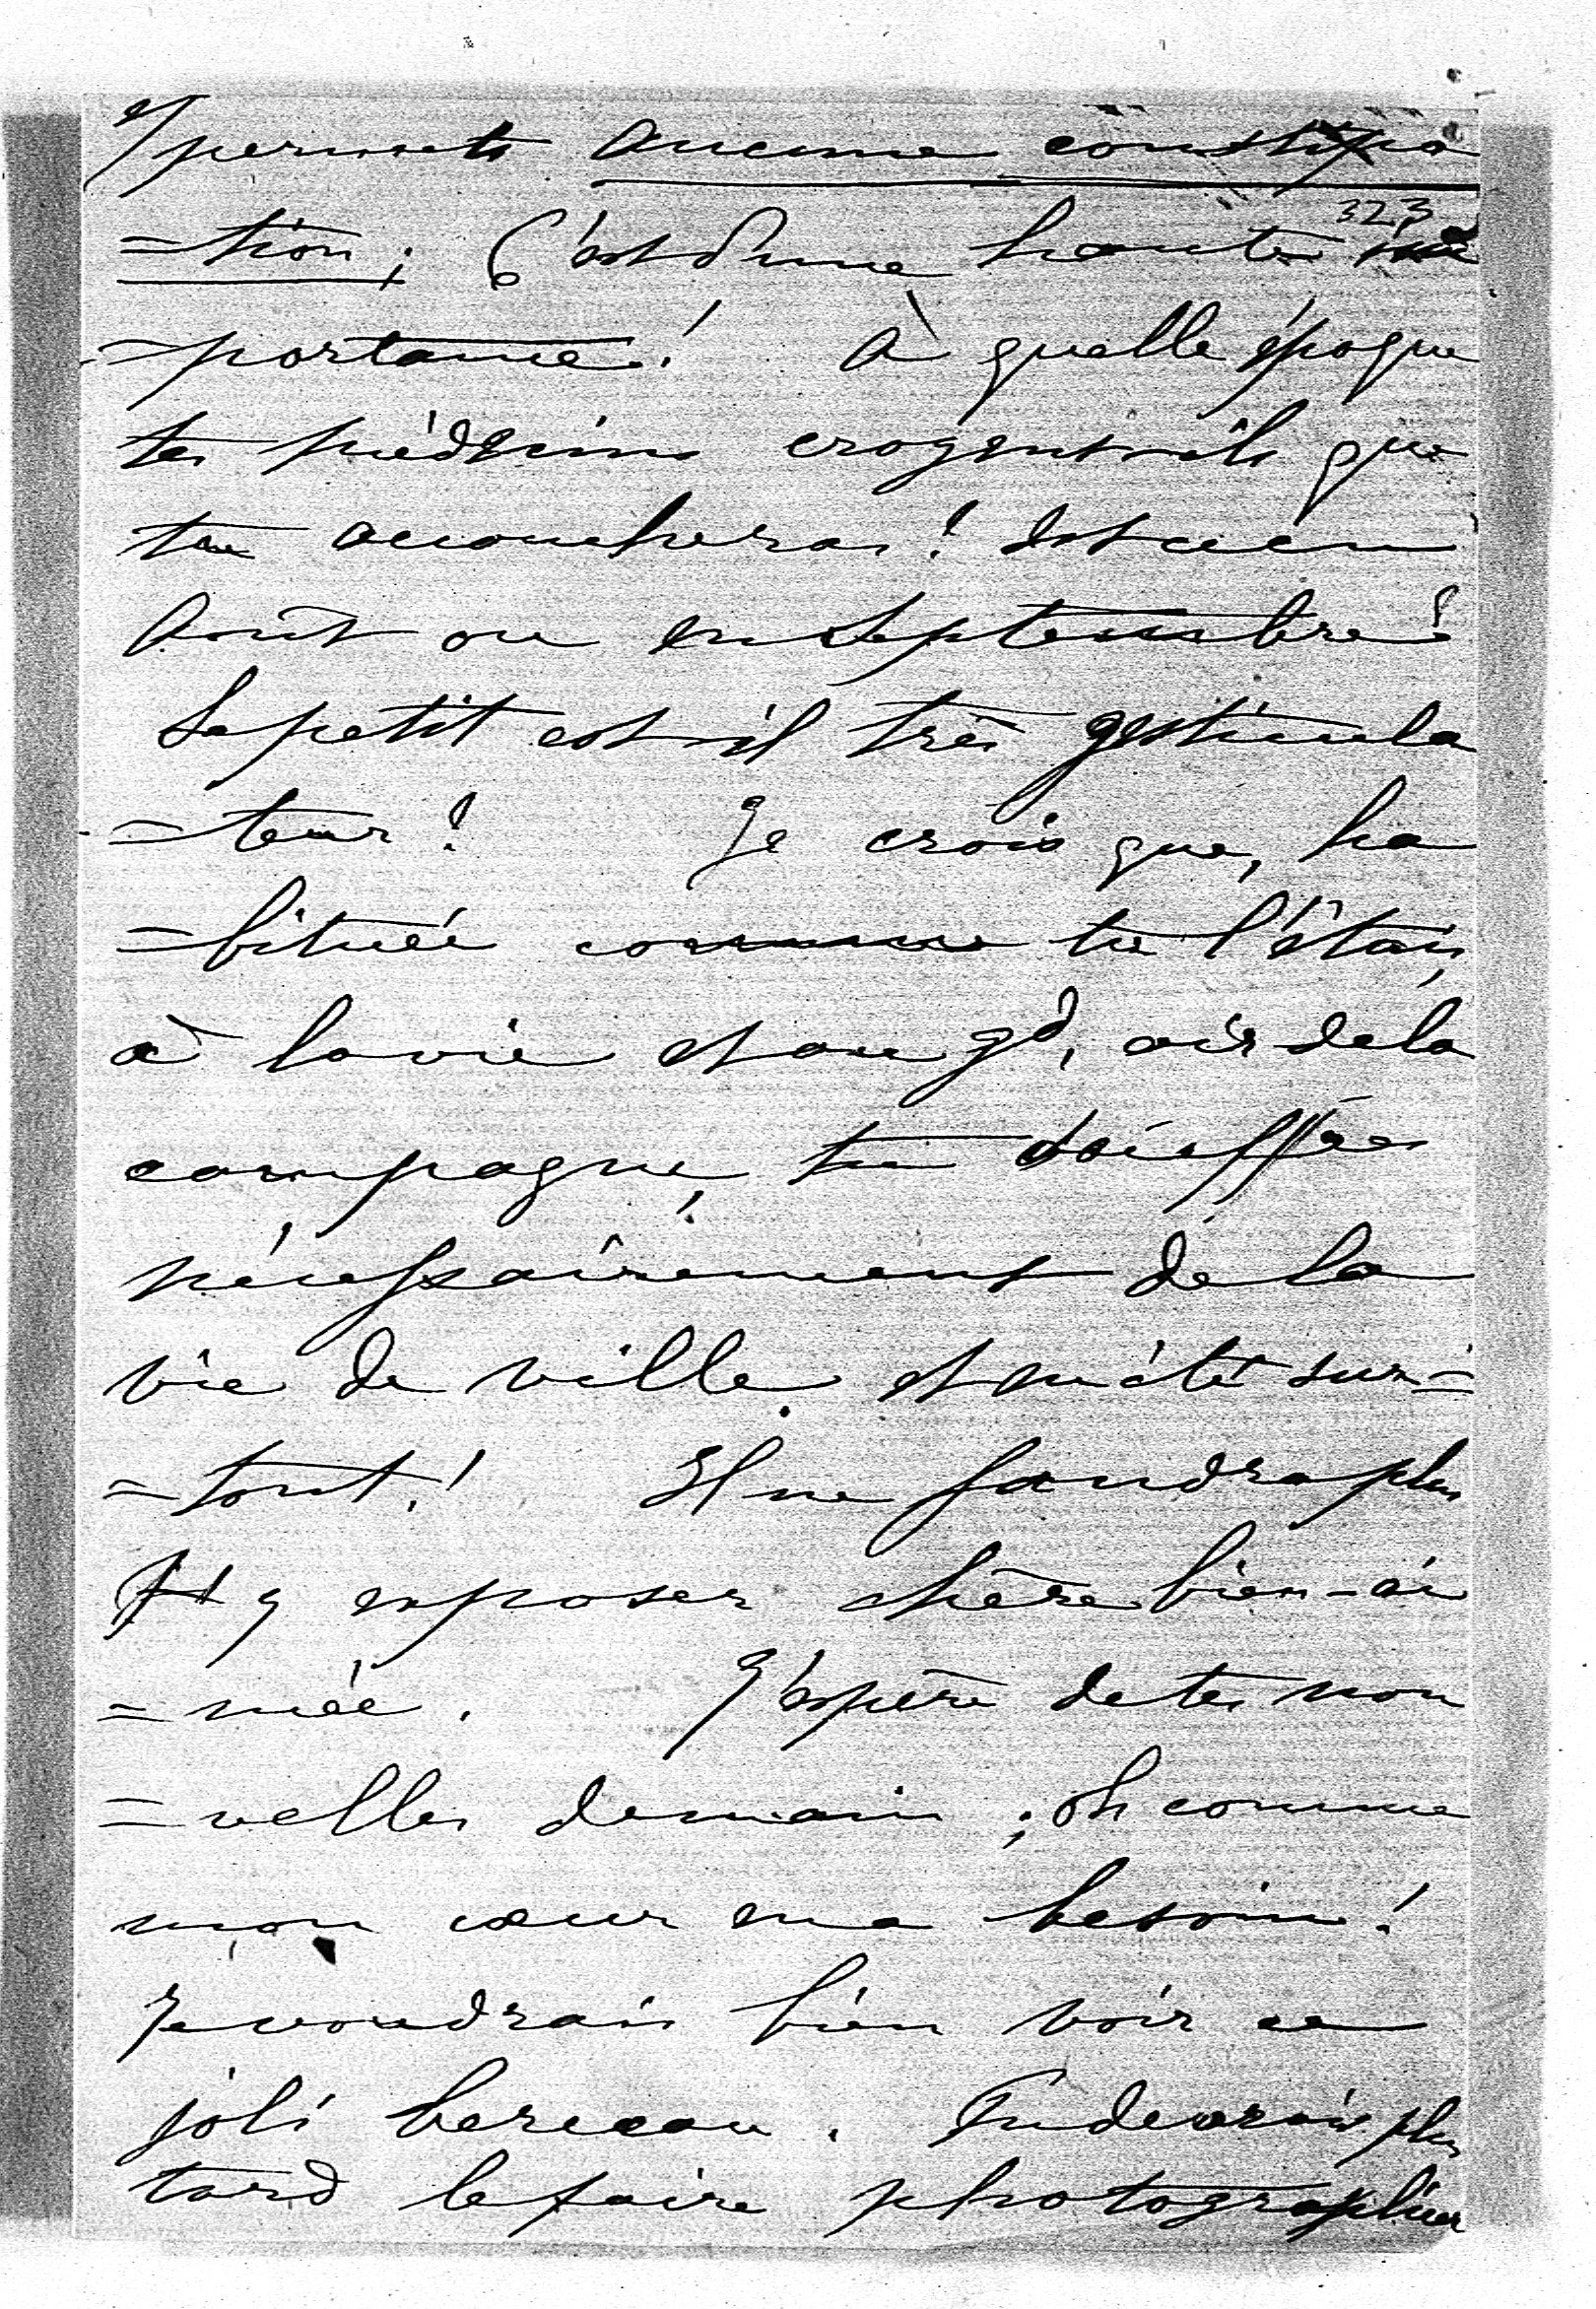 permets aucune constipa
323
=tion; C'est d'une haute im
=portance! à quelle époque
tes médecins croyent-ils que
tu accoucheras? Est ce en
Août ou en Septembre?
Le petit est-il très gesticula
=teur? Je crois que, ha
=bituée comme tu l'étais,
à la vie et au gd. air de la
campagne, tu souffres
nécessairement de la
vie de ville, et en été sur=
=tout! Il ne faudra plus
t'y exposer chère bien-ai
=mée. J'espère de tes nou
=velles demain; oh comme
mon cœur en a besoin!
Je voudrais bien voir ce
joli berceau. Tu devrais plus
tard le faire photographier